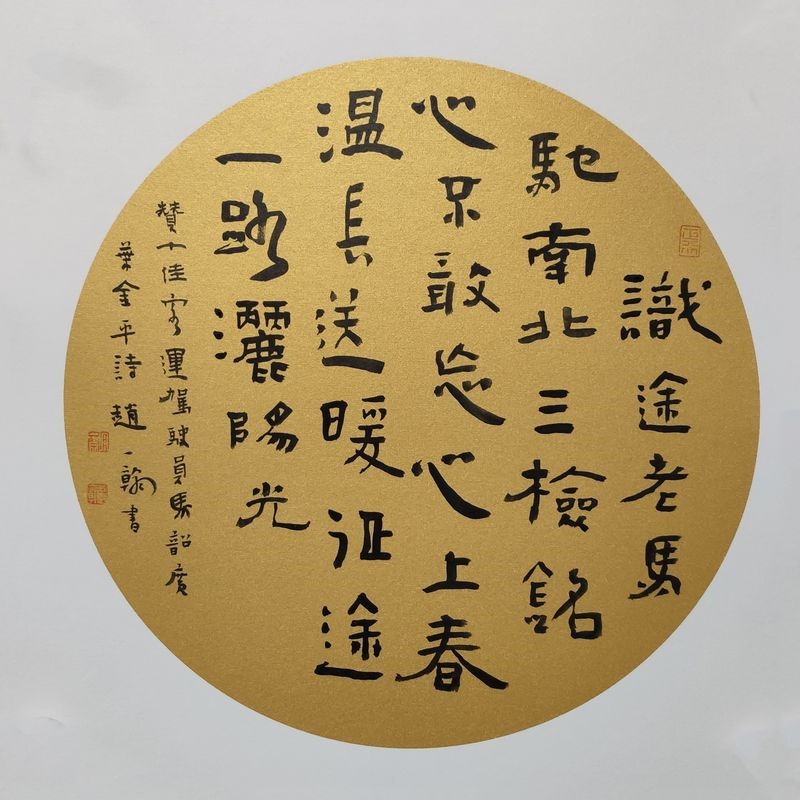 識途老馬
馳南北三檢銘
心不敢忘心上春
温長送暖征途
一路灑陽光
贊十佳客運駕駛員馬韶廣
葉金平詩趙一翰書